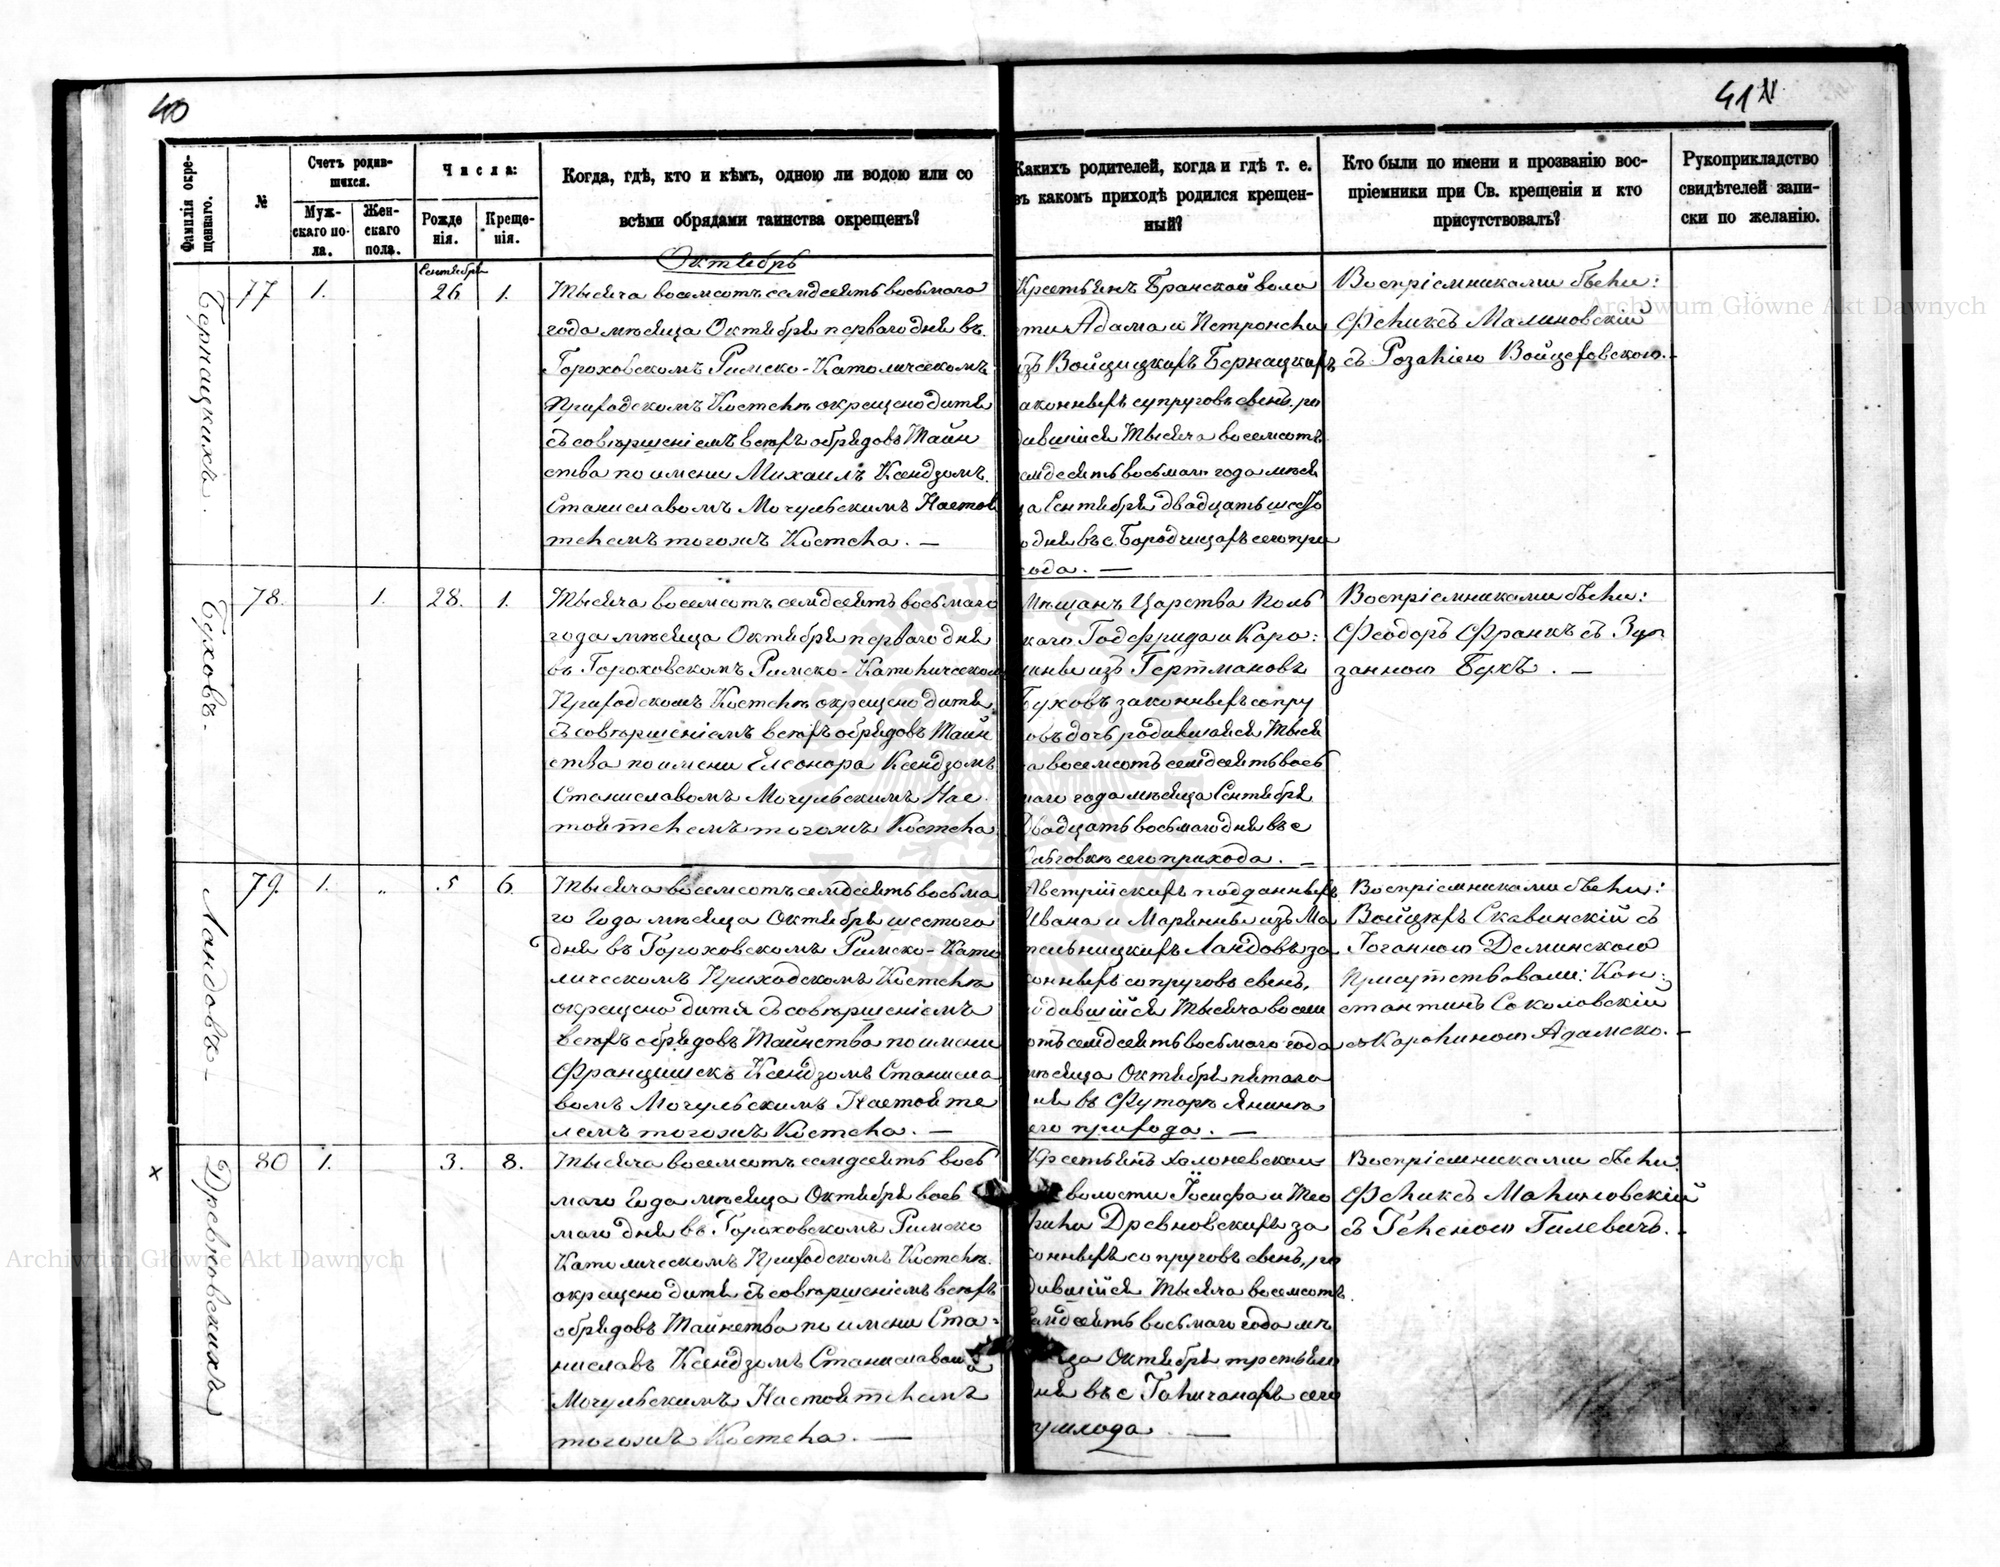 40
41
Фамилія окре-
щеннаго.
№
Счетъ родив-
шихся.
Муж-
скаго по-
ла.
Жен-
скаго
пола.
Числа:
Рожде
нія.
Креще-
нія.
Когда, гдѣ, кто и кѣмъ, одною ли водою или со
всѣми обрядами таинства окрещенъ?
Какихъ родителей, когда и гдѣ т. е.
въ какомъ приходѣ родился крещен-
ный?
Кто были по имени и прозванію вос-
пріемники при Св. крещеніи и кто
присутствовалъ?
Рукоприкладство
свидѣтелей запи-
ски по желанію.
Октябрь
Бернацкихъ.
77
1.
Сентября
26
1.
Тысяча восемсотъ семдесятъ восьмаго
года мѣсяца Октября перваго дня въ
Гороховскомъ Римско-Католическомъ
Приходскомъ Костелѣ окрещено дитя
съ совершеніемъ всѣхъ обрядовъ Таин
ства по имени Михаилъ Ксендзомъ
Станиславомъ Мочульскимъ Настоя
телемъ тогожъ Костела. —
Крестьянъ Бранской воло
сти Адама и Петронели
изъ Войцицкихъ Бернацкихъ
законныхъ супруговъ сынъ, ро
дившійся Тысяча восемсотъ
семдесятъ восьмаго года мѣся
ца Сентября двадцать шесто
го дня въ с. Бородчицахъ сего при
хода. —
Воспріемниками были:
Феликсъ Малиновскій
съ Розаліею Войцеховскою. -
Буховъ.
78.
1.
28.
1.
Тысяча восемсотъ семдесятъ восьмаго
года мѣсяца Октября перваго дня
въ Гороховскомъ Римско-Католическом
Приходскомъ Костелѣ окрещено дитя
съ совершеніемъ всѣхъ обрядовъ Таин
ства по имени Елеонора Ксендзомъ
Станиславомъ Мочульскимъ Нас
тоятелемъ тогожъ Костела
Мѣщанъ Царства Поль
скаго Годфрида и Каро:
лины изъ Гертмановъ
Буховъ законныхъ супру
говъ дочь родившаяся Тыся
ча восемсотъ семдесятъ вось
маго года мѣсяца Сентября
Двадцать восьмаго дня въ с
сего прихода. —
Воспріемниками были:
Феодоръ Франкъ съ Зу
занною Бухъ. —
Ландовъ -
79
1.
"
5
6.
Тысяча восемсотъ семдесятъ восьма
го Года мѣсяца Октября шестого
дня въ Гороховскомъ Римско-Като
лическомъ Приходскомъ Костелѣ
окрещено дитя съ совершеніемъ
всѣхъ обрядовъ Таинства по имени
Францишекъ Ксендзомъ Станисла
вомъ Мочульскимъ Настояте
лемъ тогожъ Костела. —
Австрійскихъ подданныхъ
Ивана и Марянны изъ Ма
тельницкихъ Ландовъ за
конныхъ супруговъ сынъ,
родившійся Тысяча восем
сотъ семдесятъ восьмаго года
мѣсяца Октября пятаго
дня въ Футорѣ Янинѣ
сего прихода. —
Воспріемниками были:
Войцехъ Скавинскій съ
Іоганною Деминскою
Присутствовали: Кон:
стантинъ Соколовскій
съ Каролиною Адамско. -
х
Древновскихъ
80
1.
3.
8.
Тысяча восемсотъ семдесятъ вось
маго Года мѣсяца Октября вось
маго дня въ Гороховскомъ Римско
Католическомъ Приходскомъ Костелѣ
окрещено дитя съ совершеніемъ всѣхъ
обрядовъ Таинства по имени Ста-
ниславъ Ксендзомъ Станиславом
Мочульскимъ Настоятелемъ
тогожъ Костела. —
Крестьянъ Холоневской
волости Іосифа и Тео
фили Древновскихъ за
конныхъ супруговъ сынъ, ро
дившійся Тысяча восемсотъ
семдесятъ восьмаго года мѣ
сяца Октября третьяго
дня въ с Галичанахъ сего
прихода. —
Воспріемниками были:
Феликсъ Малиновскій
съ Геленою Гилевичъ. -
Archiwum Główne Akt Dawnych
Archiwum Główne Akt Dawnych